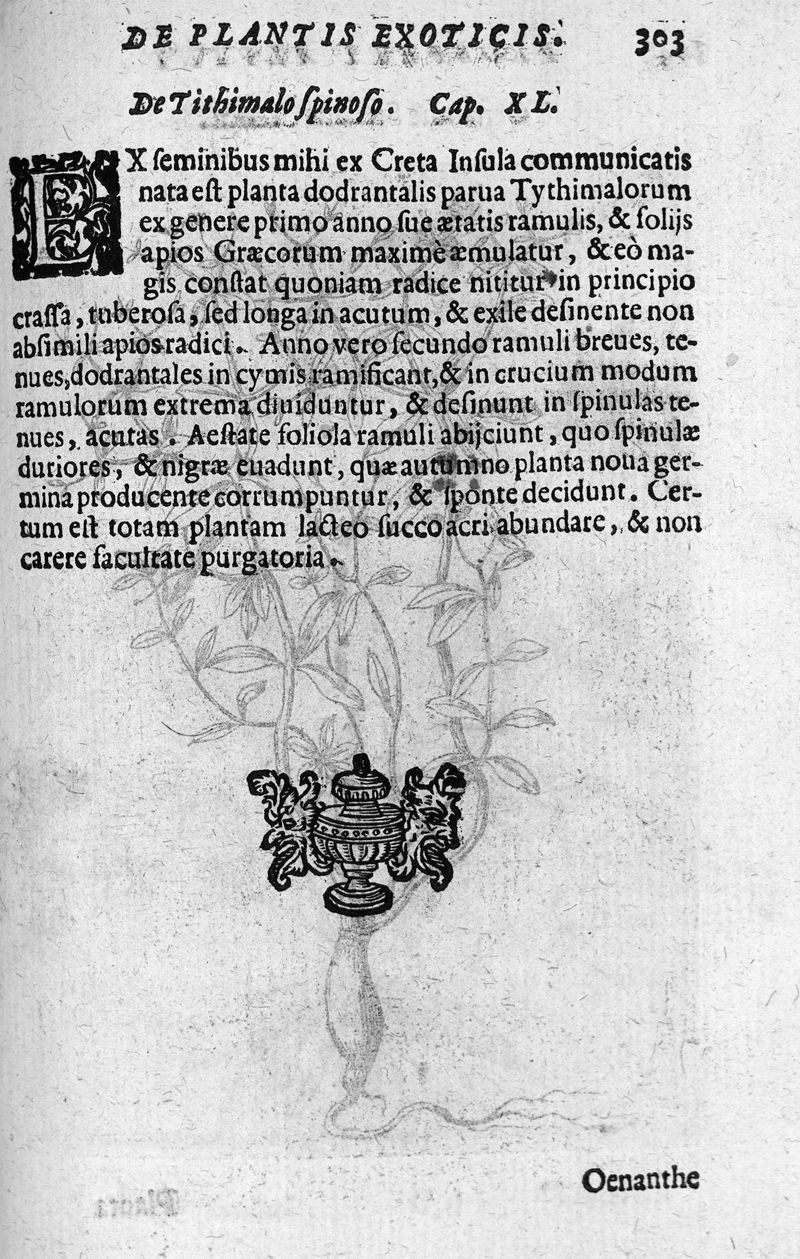 DE PLANTIS EXOTICIS. 303
De Tithimalo ſpinoſo. Cap. XL.
EX ſeminibus mihi ex Creta Inſula communicatis
nata eſt planta dodrantalis parua Tythimalorum
ex genere primo anno ſue ætatis ramulis, & folijs
apios Græcorum maximè æmulatur, & eò ma-
gis conſtat quoniam radice nititur in principio
craſſa, tuberoſa, ſed longa in acutum, & exile deſinente non
abſimili apios radici. Anno vero ſecundo ramuli breues, te-
nues, dodrantales in cymis ramificant, & in crucium modum
ramulorum extrema diuiduntur, & deſinunt in ſpinulas te-
nues, acutas. Aeſtate foliola ramuli abijciunt, quo ſpinulæ
duriores, & nigræ euadunt, quæ autumno planta noua ger-
mina producente corrumpuntur, & ſponte decidunt. Cer-
tum eſt totam plantam lacteo ſucco acri abundare, & non
carere facultate purgatoria.
Oenanthe